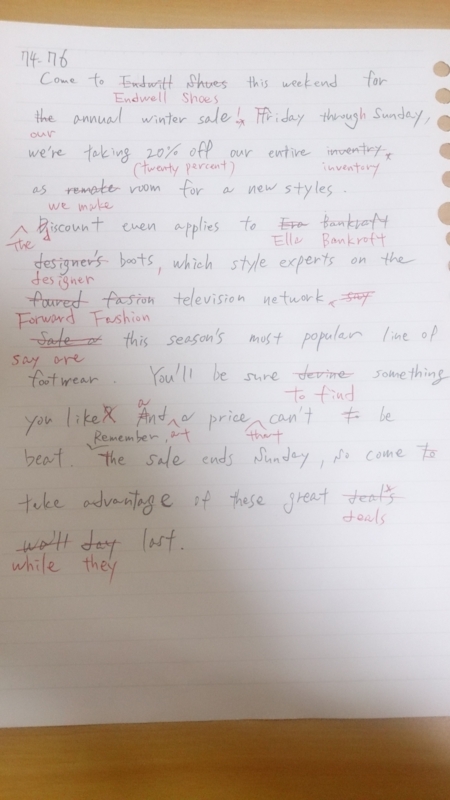 74-76
Come to Endwitt Shoes this weekend for
Endwell Shoes
the annual winter sale! Friday through Sunday,
our
we're taking 20% off our entire inventry
(twenty percent) inventory
as remake room for a new styles.
we make
Discount even applies to Era Bankroft
The Ella Bankroft
designer's boots, which style experts on the
designer
foured fasion television network say
Forward Fashion
Sale a this season's most popular line of
say are
footwear. You'll be sure devine something
to find
you like And a price can't to be
a
Remember, at that
beat. the sale ends Sunday, so come to
take advantage of these great deal's
deals
wa'll day last.
while they